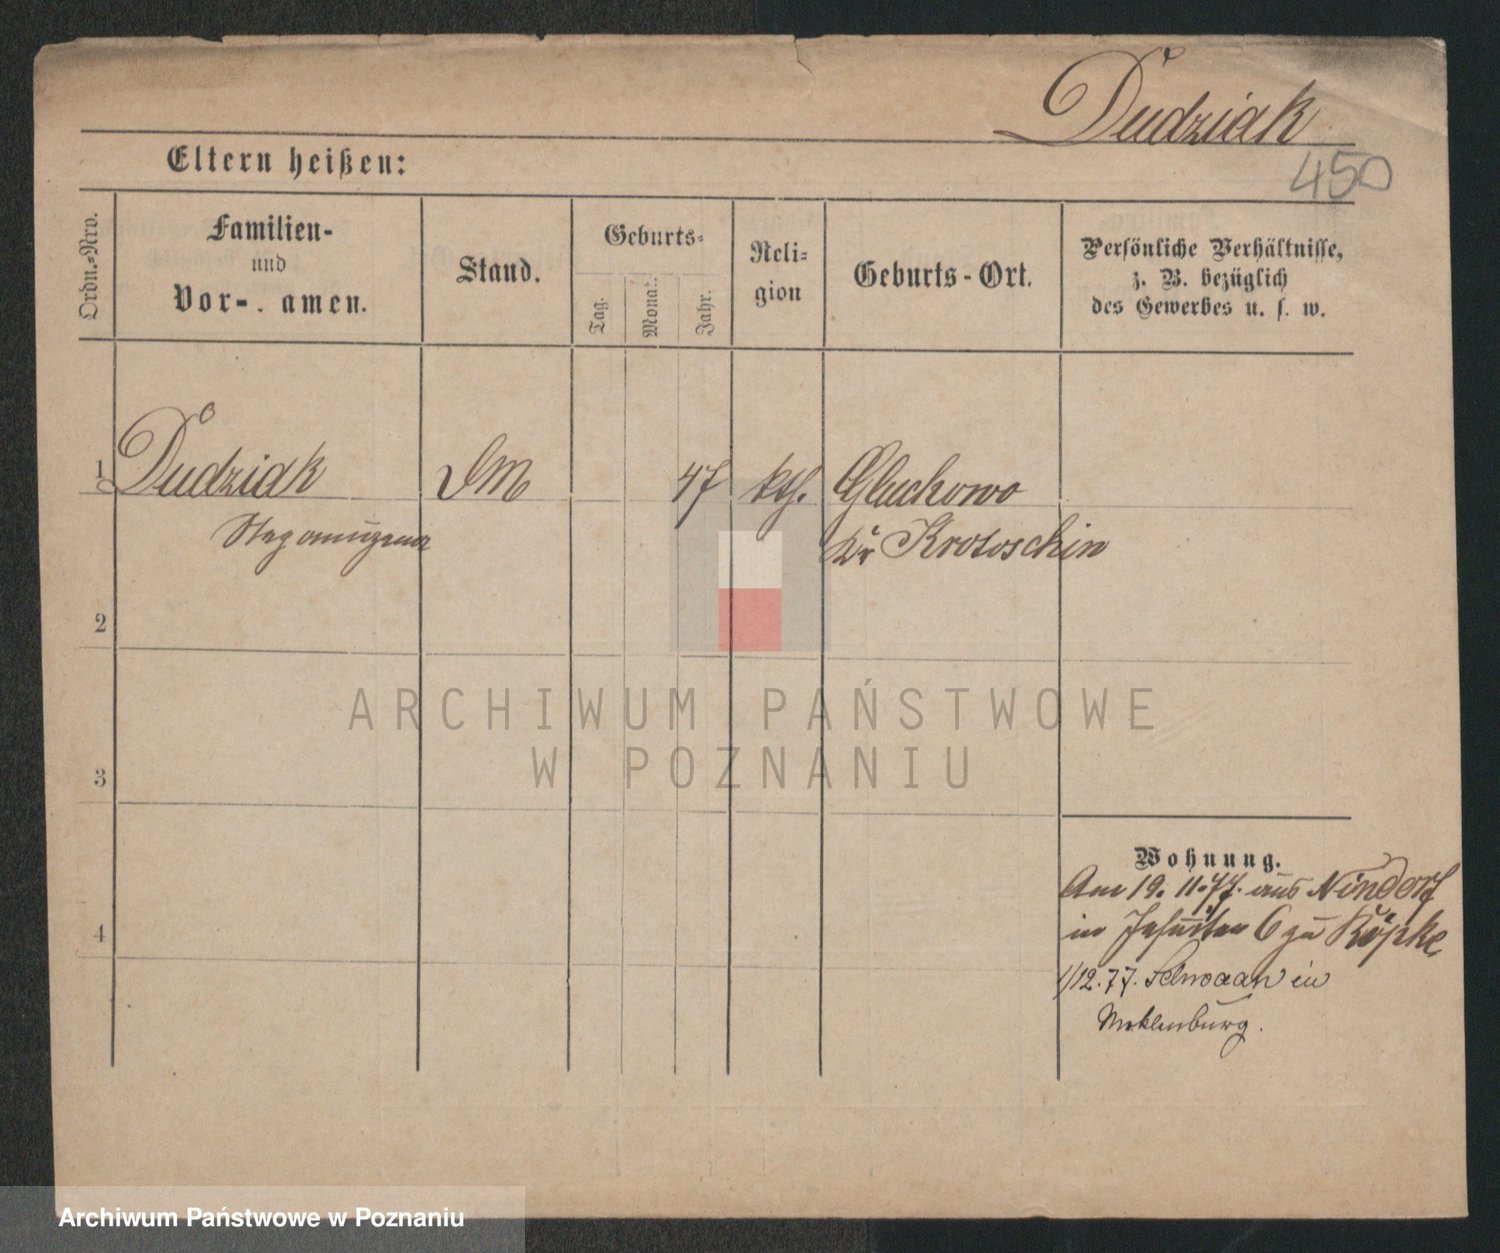 Dudziak
450
Eltern heißen:
Ordn.-Nro.
Familien-
und
Vor- . amen.
Stand.
Geburts-
Tag.
Monat.
Jahr.
Reli-
gion
Geburts-Ort.
Persönliche Verhältnisse,
z. B. bezüglich
des Gewerbes u. s. w.
1 Dudziak DM 47 kth. Gluchowo
Kr Krotoschin
2
3
4
Wohnung.
Am 19. 11. 77. aus Nindorf
in Jesuiten 6 zu Köpke
1/12. 77. Schwaan in
Meklenburg.
ARCHIWUM PAŃSTWOWE
W POZNANIU
Archiwum Państwowe w Poznaniu